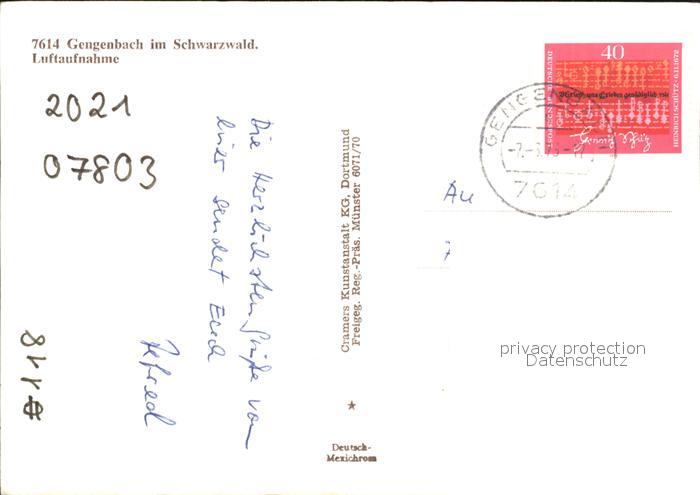 7614 Gengenbach im Schwarzwald.
Luftaufnahme
2021
07803
#118
Die Herzlichsten Grüße von
hier sendet Euch
Cramers Kunstanstalt KG, Dortmund
Freigeg. Reg.-Präs. Münster 6071/70
Deutsch-
Mexichrom
40
DEUTSCHE BUNDESPOST
HEINRICH SCHÜTZ 1672/1972
Heinrich Schütz
7614
An
privacy protection
Datenschutz